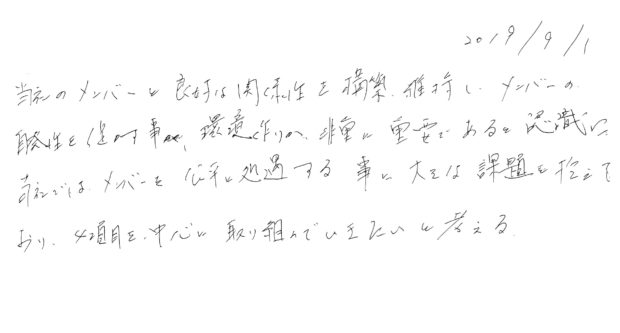 2019/9/1
当社のメンバーと良好な関係性を構築、維持し、メンバーの
自発性を促す事や、環境作りが、非常に重要であると認識し、
当社では、メンバーを公平に処遇する事に大きな課題を抱えて
おり、4項目を中心に取り組んでいきたいと考える。